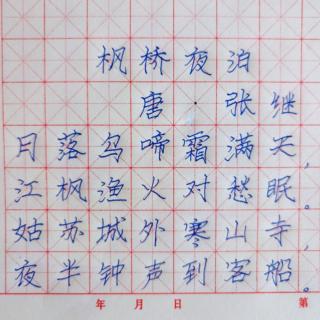 枫桥夜泊
唐·张继
月落乌啼霜满天,
江枫渔火对愁眠。
姑苏城外寒山寺,
夜半钟声到客船。
年 月 日 第